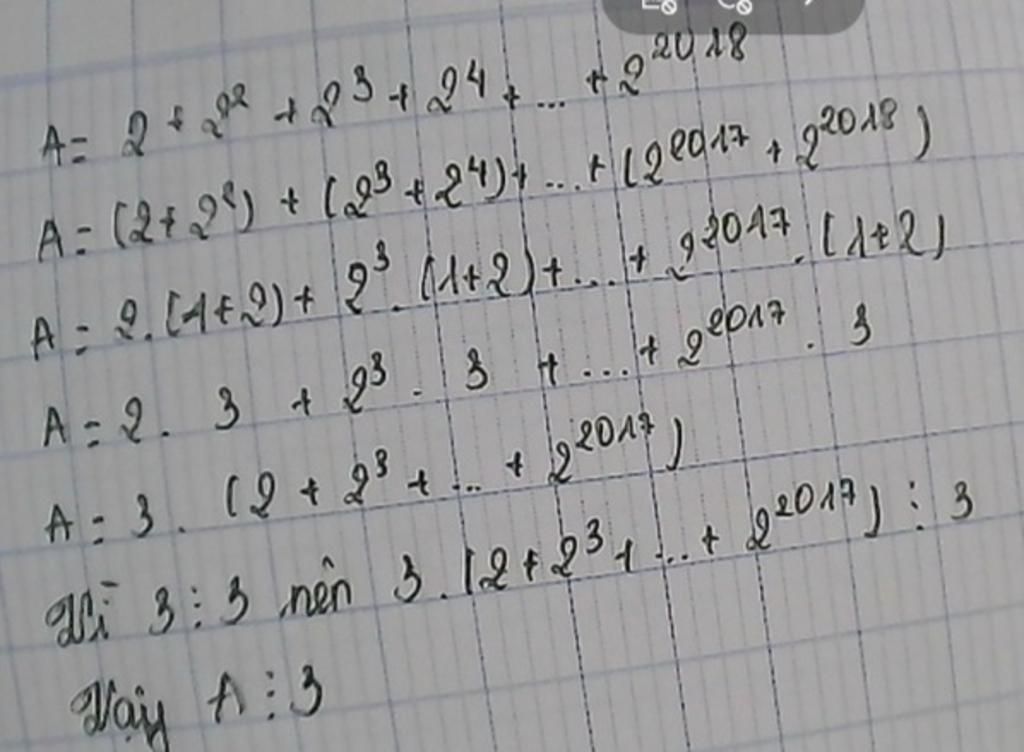 A = 2 + 2² + 2³ + 2⁴ + ... + 2²⁰¹⁸
A = (2 + 2²) + (2³ + 2⁴) + ... + (2²⁰¹⁷ + 2²⁰¹⁸)
A = 2 . (1 + 2) + 2³ . (1 + 2) + ... + 2²⁰¹⁷ . (1 + 2)
A = 2 . 3 + 2³ . 3 + ... + 2²⁰¹⁷ . 3
A = 3 . (2 + 2³ + ... + 2²⁰¹⁷)
Vì 3 ⋮ 3 nên 3 . (2 + 2³ + ... + 2²⁰¹⁷) ⋮ 3
Vậy A ⋮ 3